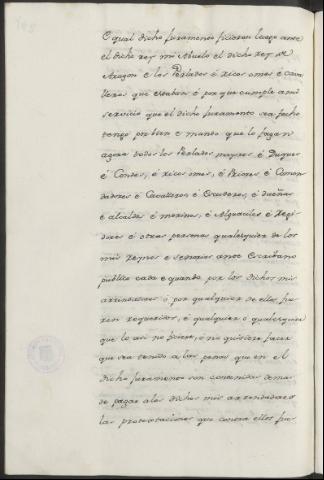 O qual dicho juramento ficieron luego ante
el dicho rey mi Abuelo el dicho rey de
Aragon e los Perlados é ricos omes é cava
lleros que estaban é por que cumple á mi
servicio que el dicho juramento sea fecho
tengo por bien e mando que lo fagan
agora todos los Perlados mayores é Duques
é Condes, é ricos omes, é Priores é Comen
dadores é Cavalleros, é Escuderos, é dueñas
é alcaldes é merinos, é Alguaciles é Regi
dores é otras personas qualesquier de los
mis Reynos e señorios ante Escribano
publico cada e quando por los dichos mis
arrendadores ó por qualquier de ellos fue
ren requeridos, é qualquier ó qualesquier
que lo asi no ficiere, ó no quisiere facer
que sea tenudo a las penas que en el
dicho juramento son contenidas demas
de pagar a los dichos mis arrendadores
las protestaciones que contra ellos fue